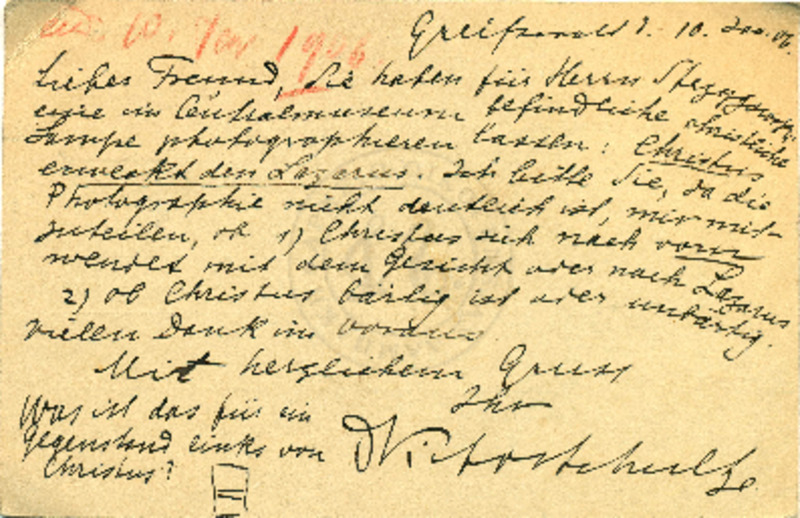 10. Jan. 1906
Greifswald 10. Jan. 06.
Lieber Freund, Sie haben für Herrn Strzygowski
eine im Centralmuseum befindliche christliche
Lampe photographieren lassen: Christus
erweckt den Lazarus. Ich bitte Sie, da die
Photographie nicht deutlich ist, mir mit-
zuteilen, ob 1) Christus sich nach vorn
wendet mit dem Gesicht oder nach Lazarus
2) ob Christus bärtig ist oder unbärtig.
Vielen Dank im voraus.
Mit herzlichem Gruss
Ihr
Was ist das für ein
Gegenstand links von
Christus?
D Victor Schultze